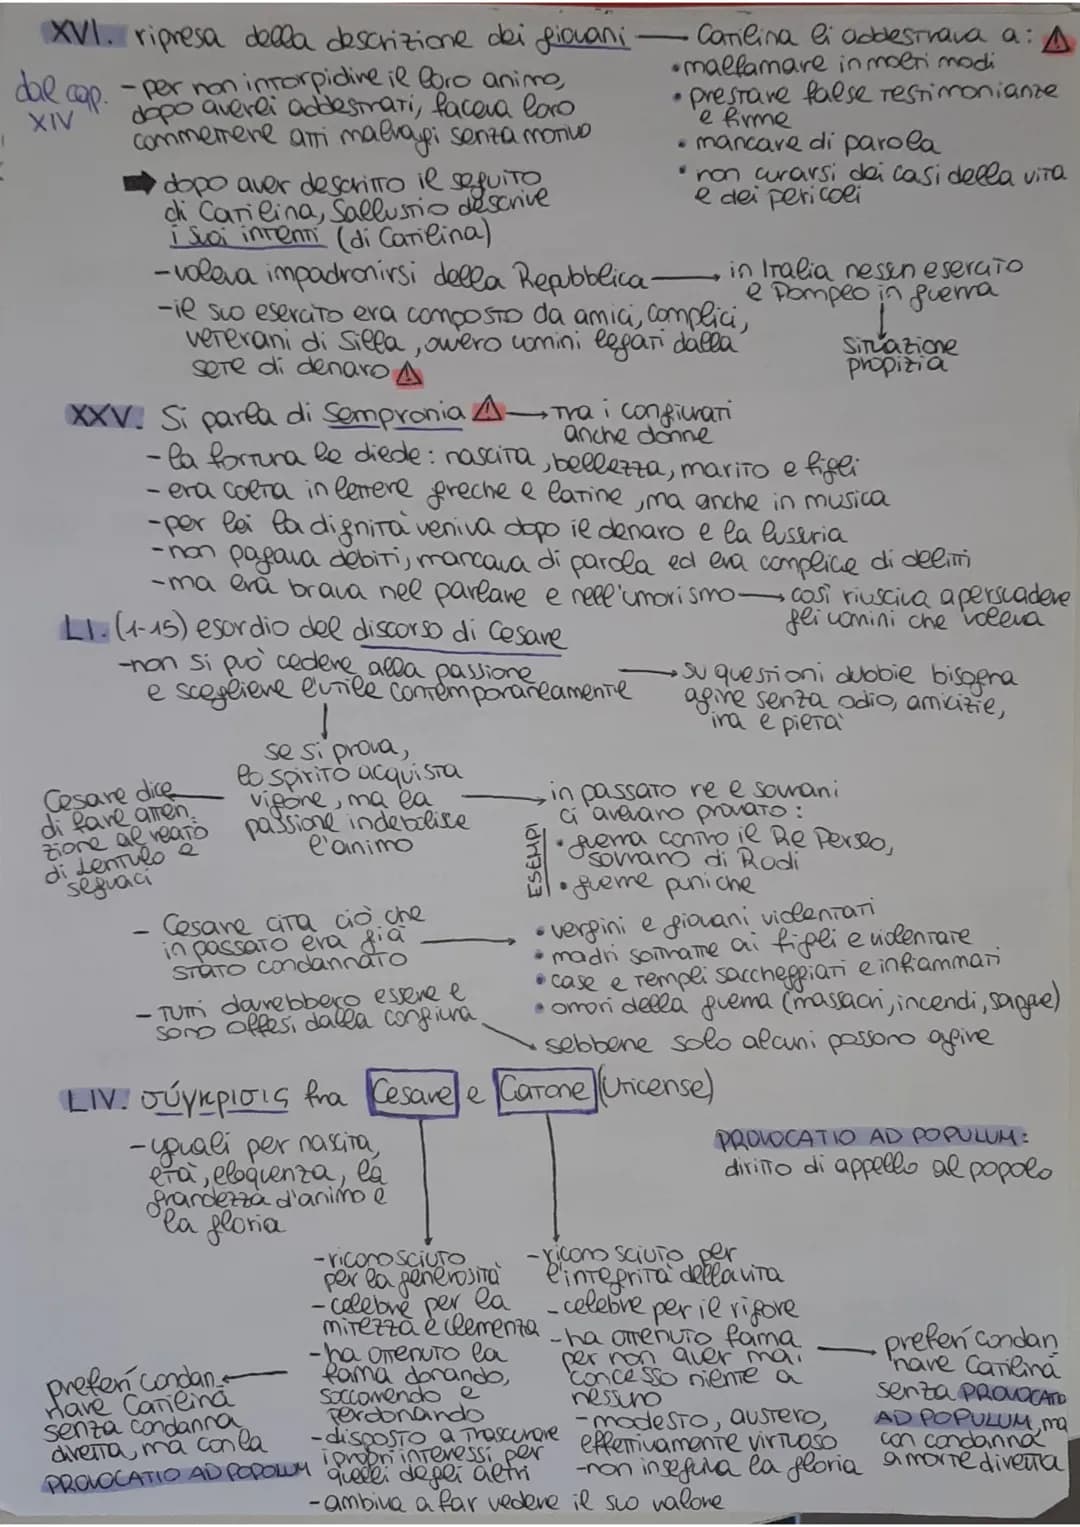 XVI. ripresa della descrizione dei giovani — Catilina li addestrava a:
• malfamare in molti modi
• prestare false testimonianze
e firme
• mancare di parola
• non curarsi dei casi della vita
e dei pericoli
dal cap.
XIV
- per non intorpidire il loro animo,
dopo averli addestrati, faceva loro
commettere atti malvagi senza motivo
➡ dopo aver descritto il seguito
di Catilina, Sallustio descrive
i suoi intenti (di Catilina)
- voleva impadronirsi della Repubblica → in Italia nessun esercito
e Pompeo in guerra
↓
situazione
propizia
- il suo esercito era composto da amici, complici,
veterani di Silla, ovvero uomini legati dalla
sete di denaro
XXV. Si parla di Sempronia → tra i congiurati
anche donne
- la fortuna le diede: nascita, bellezza, marito e figli
- era colta in lettere greche e latine, ma anche in musica
- per lei la dignità veniva dopo il denaro e la lussria
- non pagava debiti, mancava di parola ed era complice di delitti
- ma era brava nel parlare e nell'umorismo → così riusciva a persuadere
gli uomini che voleva
LI. (1-15) esordio del discorso di Cesare
- non si può cedere alla passione
e scegliere l'utile contemporaneamente
→ su questioni dubbie bisogna
agire senza odio, amicizie,
ira e pietà
↓
se si prova,
lo spirito acquista
vigore, ma la
passione indebolisce
l'animo
Cesare dice
di fare atten.
zione al reato
di Lentulo e
seguaci
→ in passato re e sovrani
ci avevano provato:
ESEMPI
• guerra contro il Re Perseo,
sovrano di Rodi
• guerre puniche
- Cesare cita ciò che
in passato era già
stato condannato
→ • vergini e giovani violentati
• madri sottratte ai figli e violentate
• case e templi saccheggiati e infiammati
• orrori della guerra (massacri, incendi, sangue)
- tutti dovrebbero essere e
sono offesi dalla congiura
→ sebbene solo alcuni possono agire
LIV. σύγκρισις fra Cesare e Catone (Uticense)
- uguali per nascita,
età, eloquenza, la
grandezza d'animo e
la gloria
PROVOCATIO AD POPULUM:
diritto di appello al popolo
- riconosciuto
per la generosità
- celebre per la
mitezza e clemenza
- ha ottenuto la
fama donando,
soccorrendo e
perdonando
- disposto a trascurare
i propri interessi per
quelli degli altri
- ambiva a far vedere il suo valore
preferì condan.
nare Catilina
senza condanna
diretta, ma con la
PROVOCATIO AD POPOLUM
- riconosciuto per
l'integrità della vita
- celebre per il rigore
- ha ottenuto fama
per non aver mai
concesso niente a
nessuno
- modesto, austero,
effettivamente virtuoso
- non inseguiva la gloria
preferì condan
nare Catilina
senza PROVOCATIO
AD POPULUM, ma
con condanna
a morte diretta